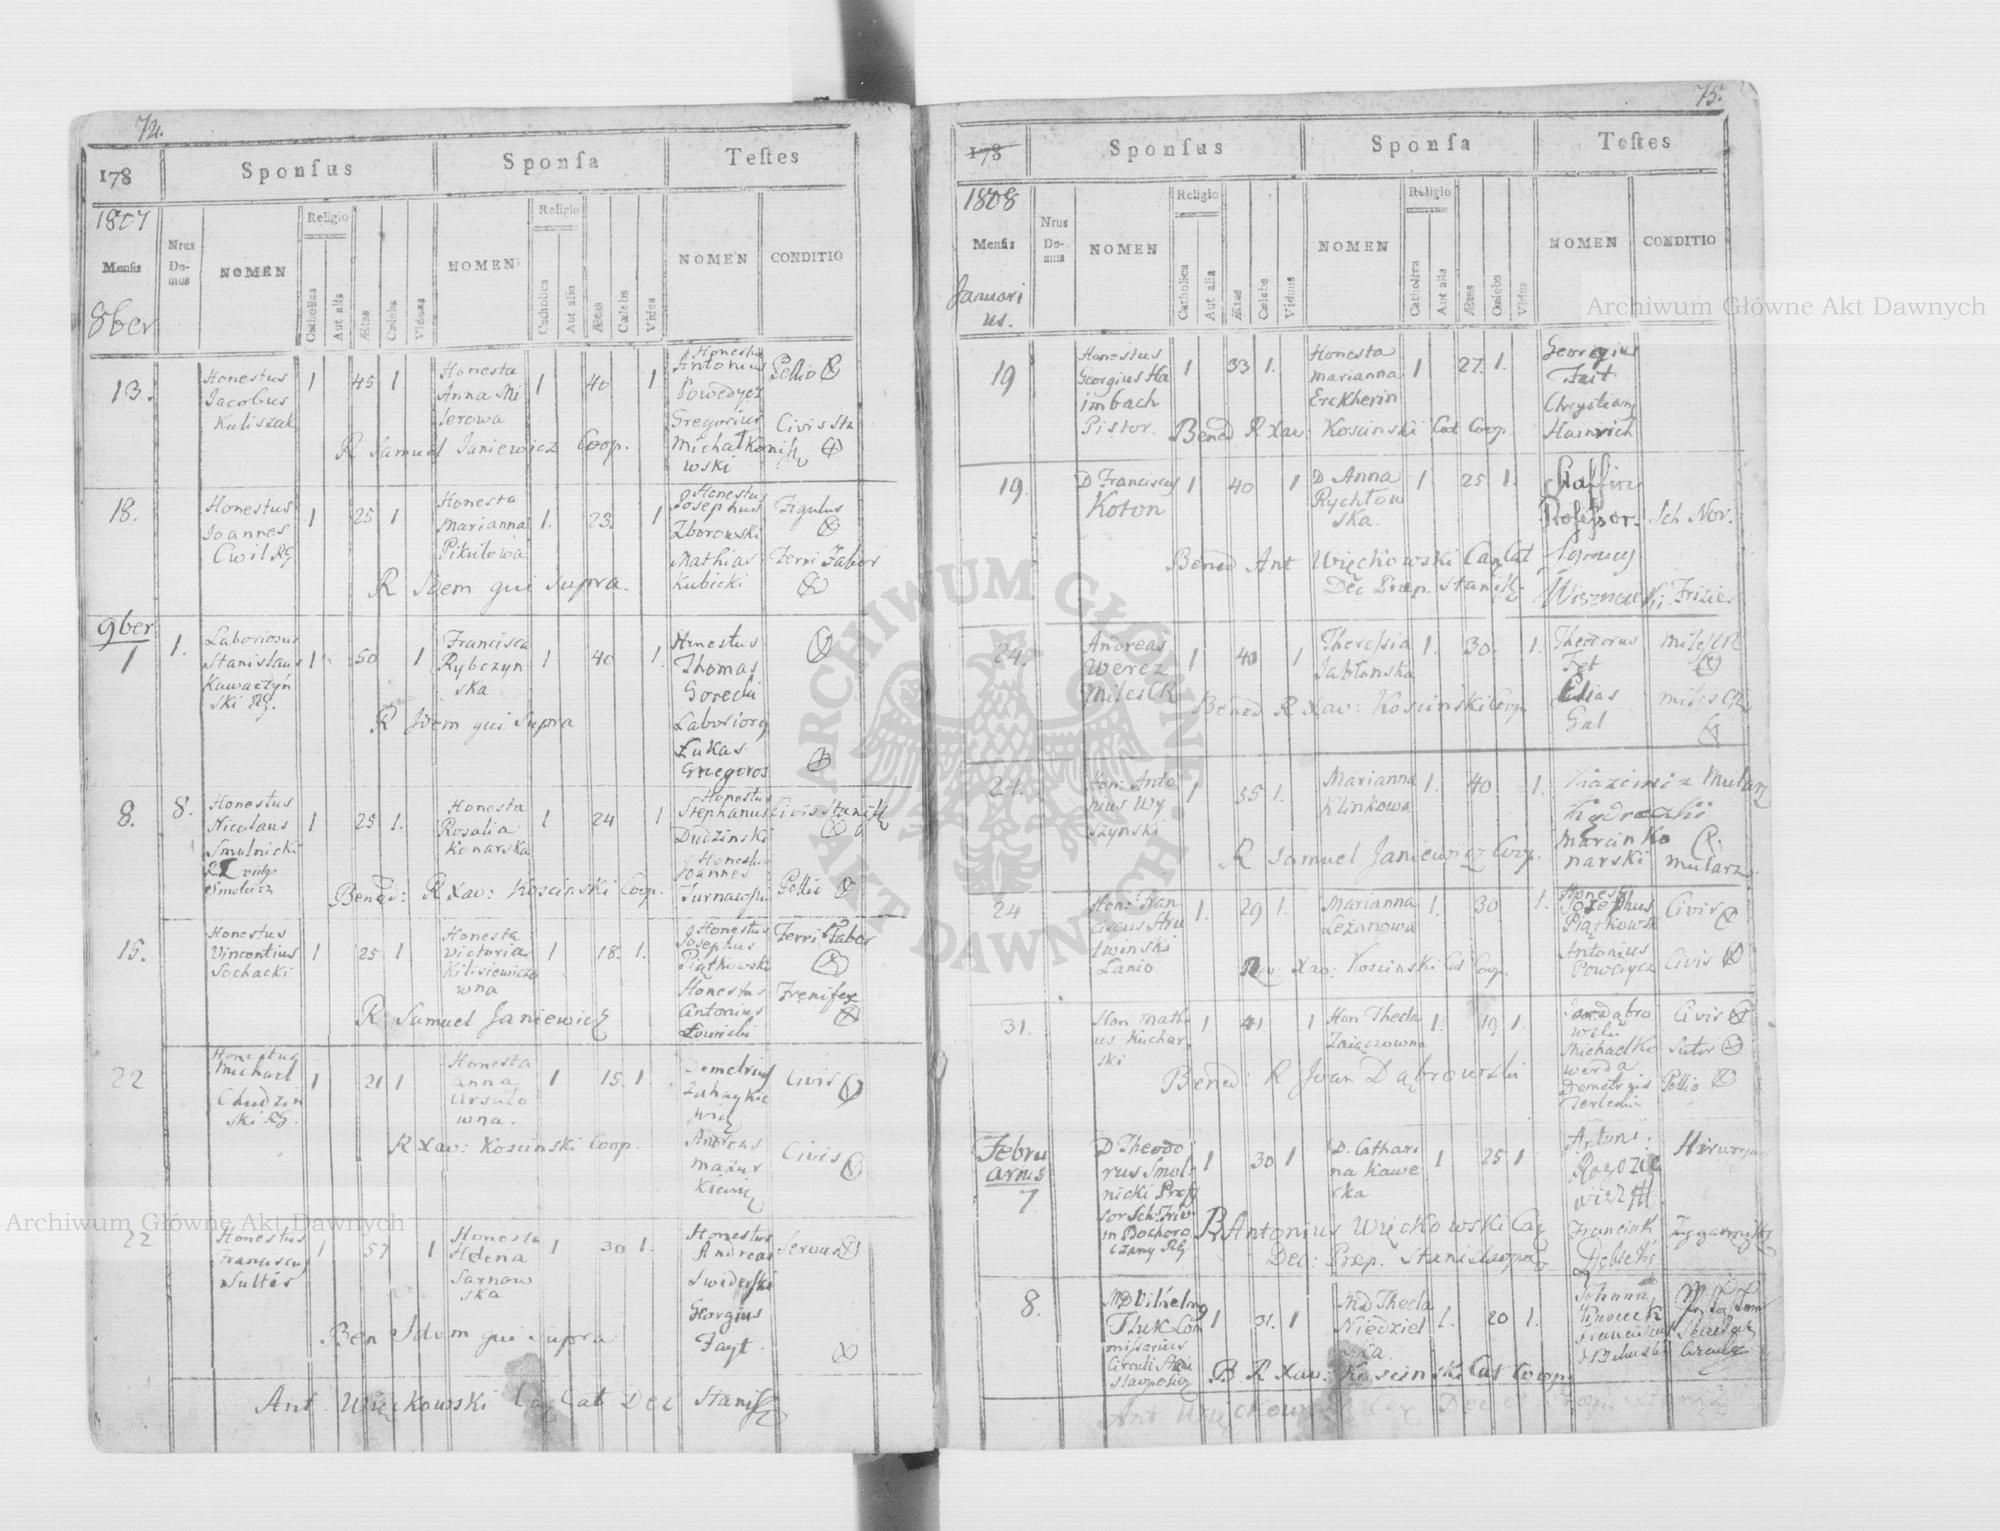 74.
178
Sponsus
Sponsa
Testes
1807
Mensis
8ber
Nrus Domus
NOMEN
Religio
Catholica
Aut alia
Ætas
Cælebs
Viduus
NOMEN
Religio
Catholica
Aut alia
Ætas
Cælebs
Vidua
NOMEN
CONDITIO
13.
Honestus
Jacobus
Kuliszak
1 45 1
Honesta
Anna Mi
lerowa
1 40 1.
Honestus
Antonius
Powedycz
Pellio
Gregorius
Michałko
wski
Civis Sta
R Samuel Janiewicz Coop.
18.
Honestus
Joannes
Cwil RG
1 25 1
Honesta
Marianna
Pikulowa
1. 23. 1
Honestus
Josephus
Zborowski
Figulus
Mathias
Kubicki
Ferri Faber
R Idem qui supra.
9ber
1
1.
Laboriosus
Stanislaus
Kawaczyń
ski RG.
1 50 1
Francisca
Rybczyn
ska
1 40 1.
Honestus
Thomas
Gorecki
Laboriosus
Łukas
Gregoros
R Idem qui supra
8.
8.
Honestus
Nicolaus
Smolnicki
vulgo
1 25 1.
Honesta
Rosalia
Konarska
1 24 1
Honestus
Stephanus
Dudzinski
Civis Stanisl
Honestus
Joannes
Pellio
Bened: R Xav: Koscinski Coop.
15.
Honestus
Vincentius
Sochacki
1 25 1
Honesta
Victoria
Kilisiewiczo
wna
1 18. 1.
Honestus
Josephus
Piątkowski
Ferri Faber
Honestus
Antonius
Łowicki
Frenifex
R Samuel Janiewicz
22
Honestus
Michael
Chudzin
ski RG.
1 21 1
Honesta
Anna
Ursuło
wna.
1 15. 1
Demetrius
Zahaykie
wicz
Civis
Andreas
Mazur
kiewicz
Civis
R Xav: Koscinski Coop.
22
Honestus
Franciscus
Sultis
1 57 1
Honesta
Helena
Sarnow
ska
1 30 1.
Honestus
Andreas
Swiderski
Servus
Georgius
Fayt.
Ben Idem qui supra
Ant Więckowski Can Cat Dec Stanisl
75.
178
Sponsus
Sponsa
Testes
1808
Mensis
Januari
us.
Nrus Domus
NOMEN
Religio
Catholica
Aut alia
Ætas
Cælebs
Viduus
NOMEN
Religio
Catholica
Aut alia
Ætas
Cælebs
Vidua
NOMEN
CONDITIO
19
Honestus
Georgius Ha
imbach
Pistor.
1 33 1.
Honesta
Marianna
Erckherin
1 27. 1.
Georgius
Fait
Chrystian
Hainrich
Bened R Xav: Koscinski Cat Coop.
19.
D Franciscus
Koton
1 40 1
D Anna
Rychłow
ska.
1. 25 1.
Professor.
Sch Nor.
Frizier
Bened Ant Więckowski Can Cat
Dec Præp. Stanisl
24.
Andreas
Werez
Miles CR
1 40 1
Theressia
Jabłonska
1. 30. 1.
Theodorus
Fet
Miles CR
Elias
Gal
Miles CR
Bened R Xav: Koscinski Coop
24.
Hon: Anto
nius Wy
szynski
1 55 1.
Marianna
Klinkowa
1. 40 1.
Kazimiz Mularz
Marcin Ko
narski
Mularz
R Samuel Janiewicz Coop.
24
Hon: Fran
ciscus Stru
twinski
Lanio
1. 29 1.
Marianna
Lezanowa
1. 30 1.
Honestus
Josephus
Piątkowski
Civis
Antonius
Powedycz
Civis
Rev: Xav: Koscinski Cat Coop.
31.
Hon Math
us Kuchar
ski
1. 41 1
Hon Thecla
Zaiączowna
1. 19 1.
Dąbro
wski
Civis
Michael Ko
werda
Sutor
Demetrius
Terlecki
Pellio
Bened: R Joan Dąbrowski
Febru
arius
7
D Theodo
rus Smol
nicki Profes
sor Sch: Triv:
in Bohoro
czany RG
1 30 1
D. Cathari
na Kawe
cka
1 25 1.
Antoni
Francisk
B Antonius Więckowski Can
Dec: Præp. Stanislaopol
8.
MD Vilhelmg
Fluk Com
missarius
Circuli Stani
slaopolien
1 31. 1
MD Thecla
Niedziel
ska.
1. 20 1.
Johann
Franciscus
B. R Xav: Koscinski Cat Coop.
Ant Więckowski Can Dec et Præp. Stanisl
Archiwum Główne Akt Dawnych
Archiwum Główne Akt Dawnych
ARCHIWUM GŁÓWNE AKT DAWNYCH